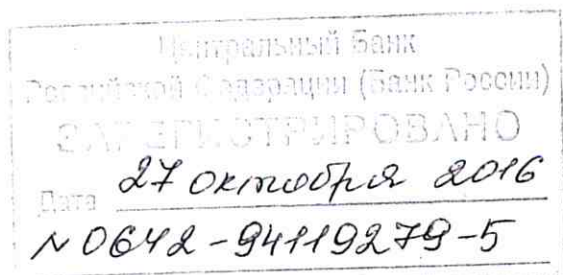 Центральный Банк
Российской Федерации (Банк России)
ЗАРЕГИСТРИРОВАНО
Дата 27 октября 2016
№ 0642-94119279-5